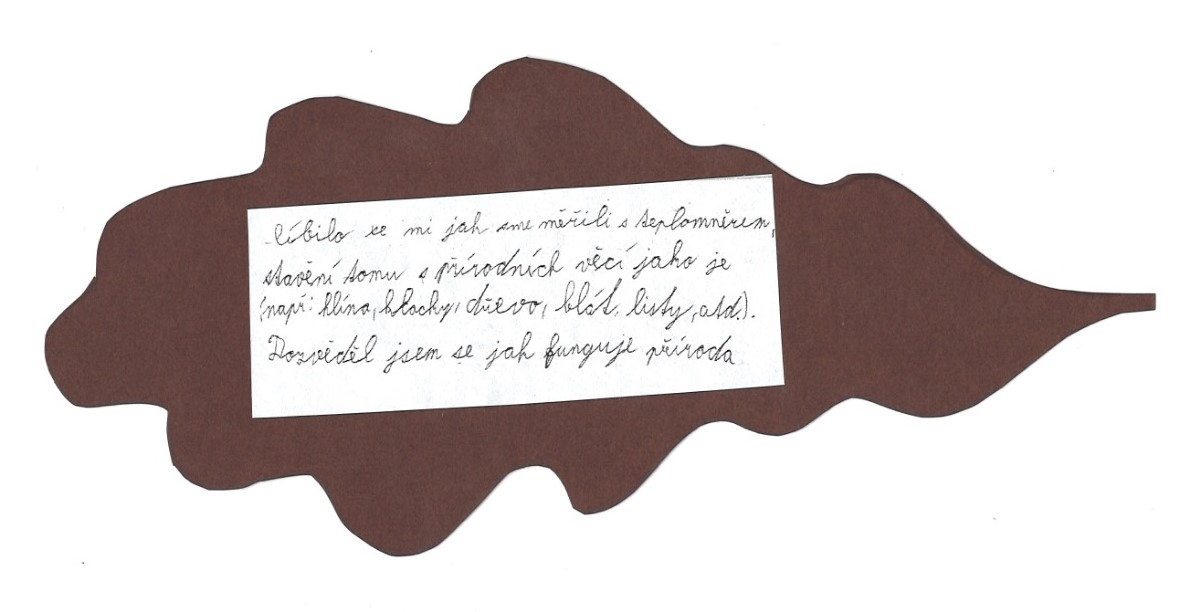 líbilo se mi jak sme měřili s teplomněrem,
stavění tomu s přírodních věcí jako je
(např: hlína, klacky, dřevo, blát, listy, atd.).
Dozvěděl jsem se jak funguje příroda